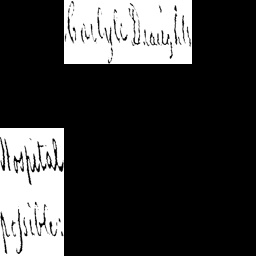 Carlyle Draughts
Hospital
possible: